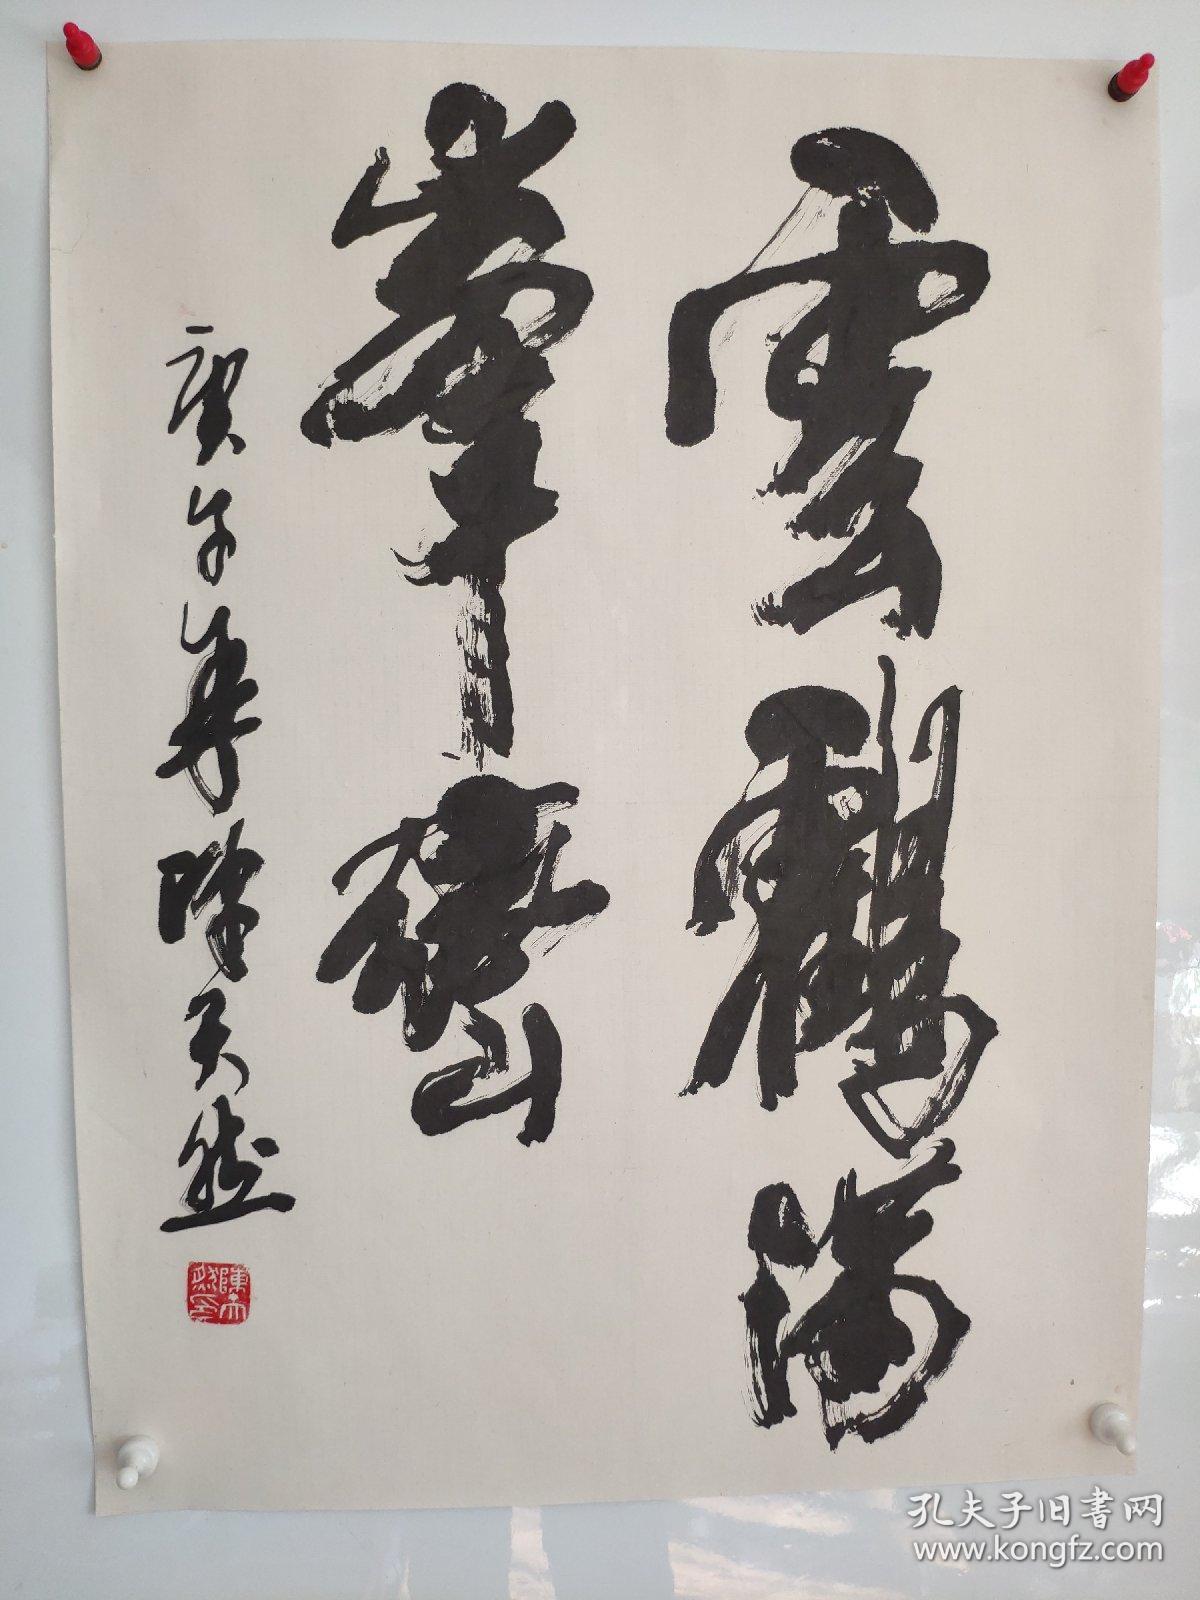 雲鶴滿
峯巒
庚午年陳天然
陳天然印
孔夫子旧書网
www.kongfz.com